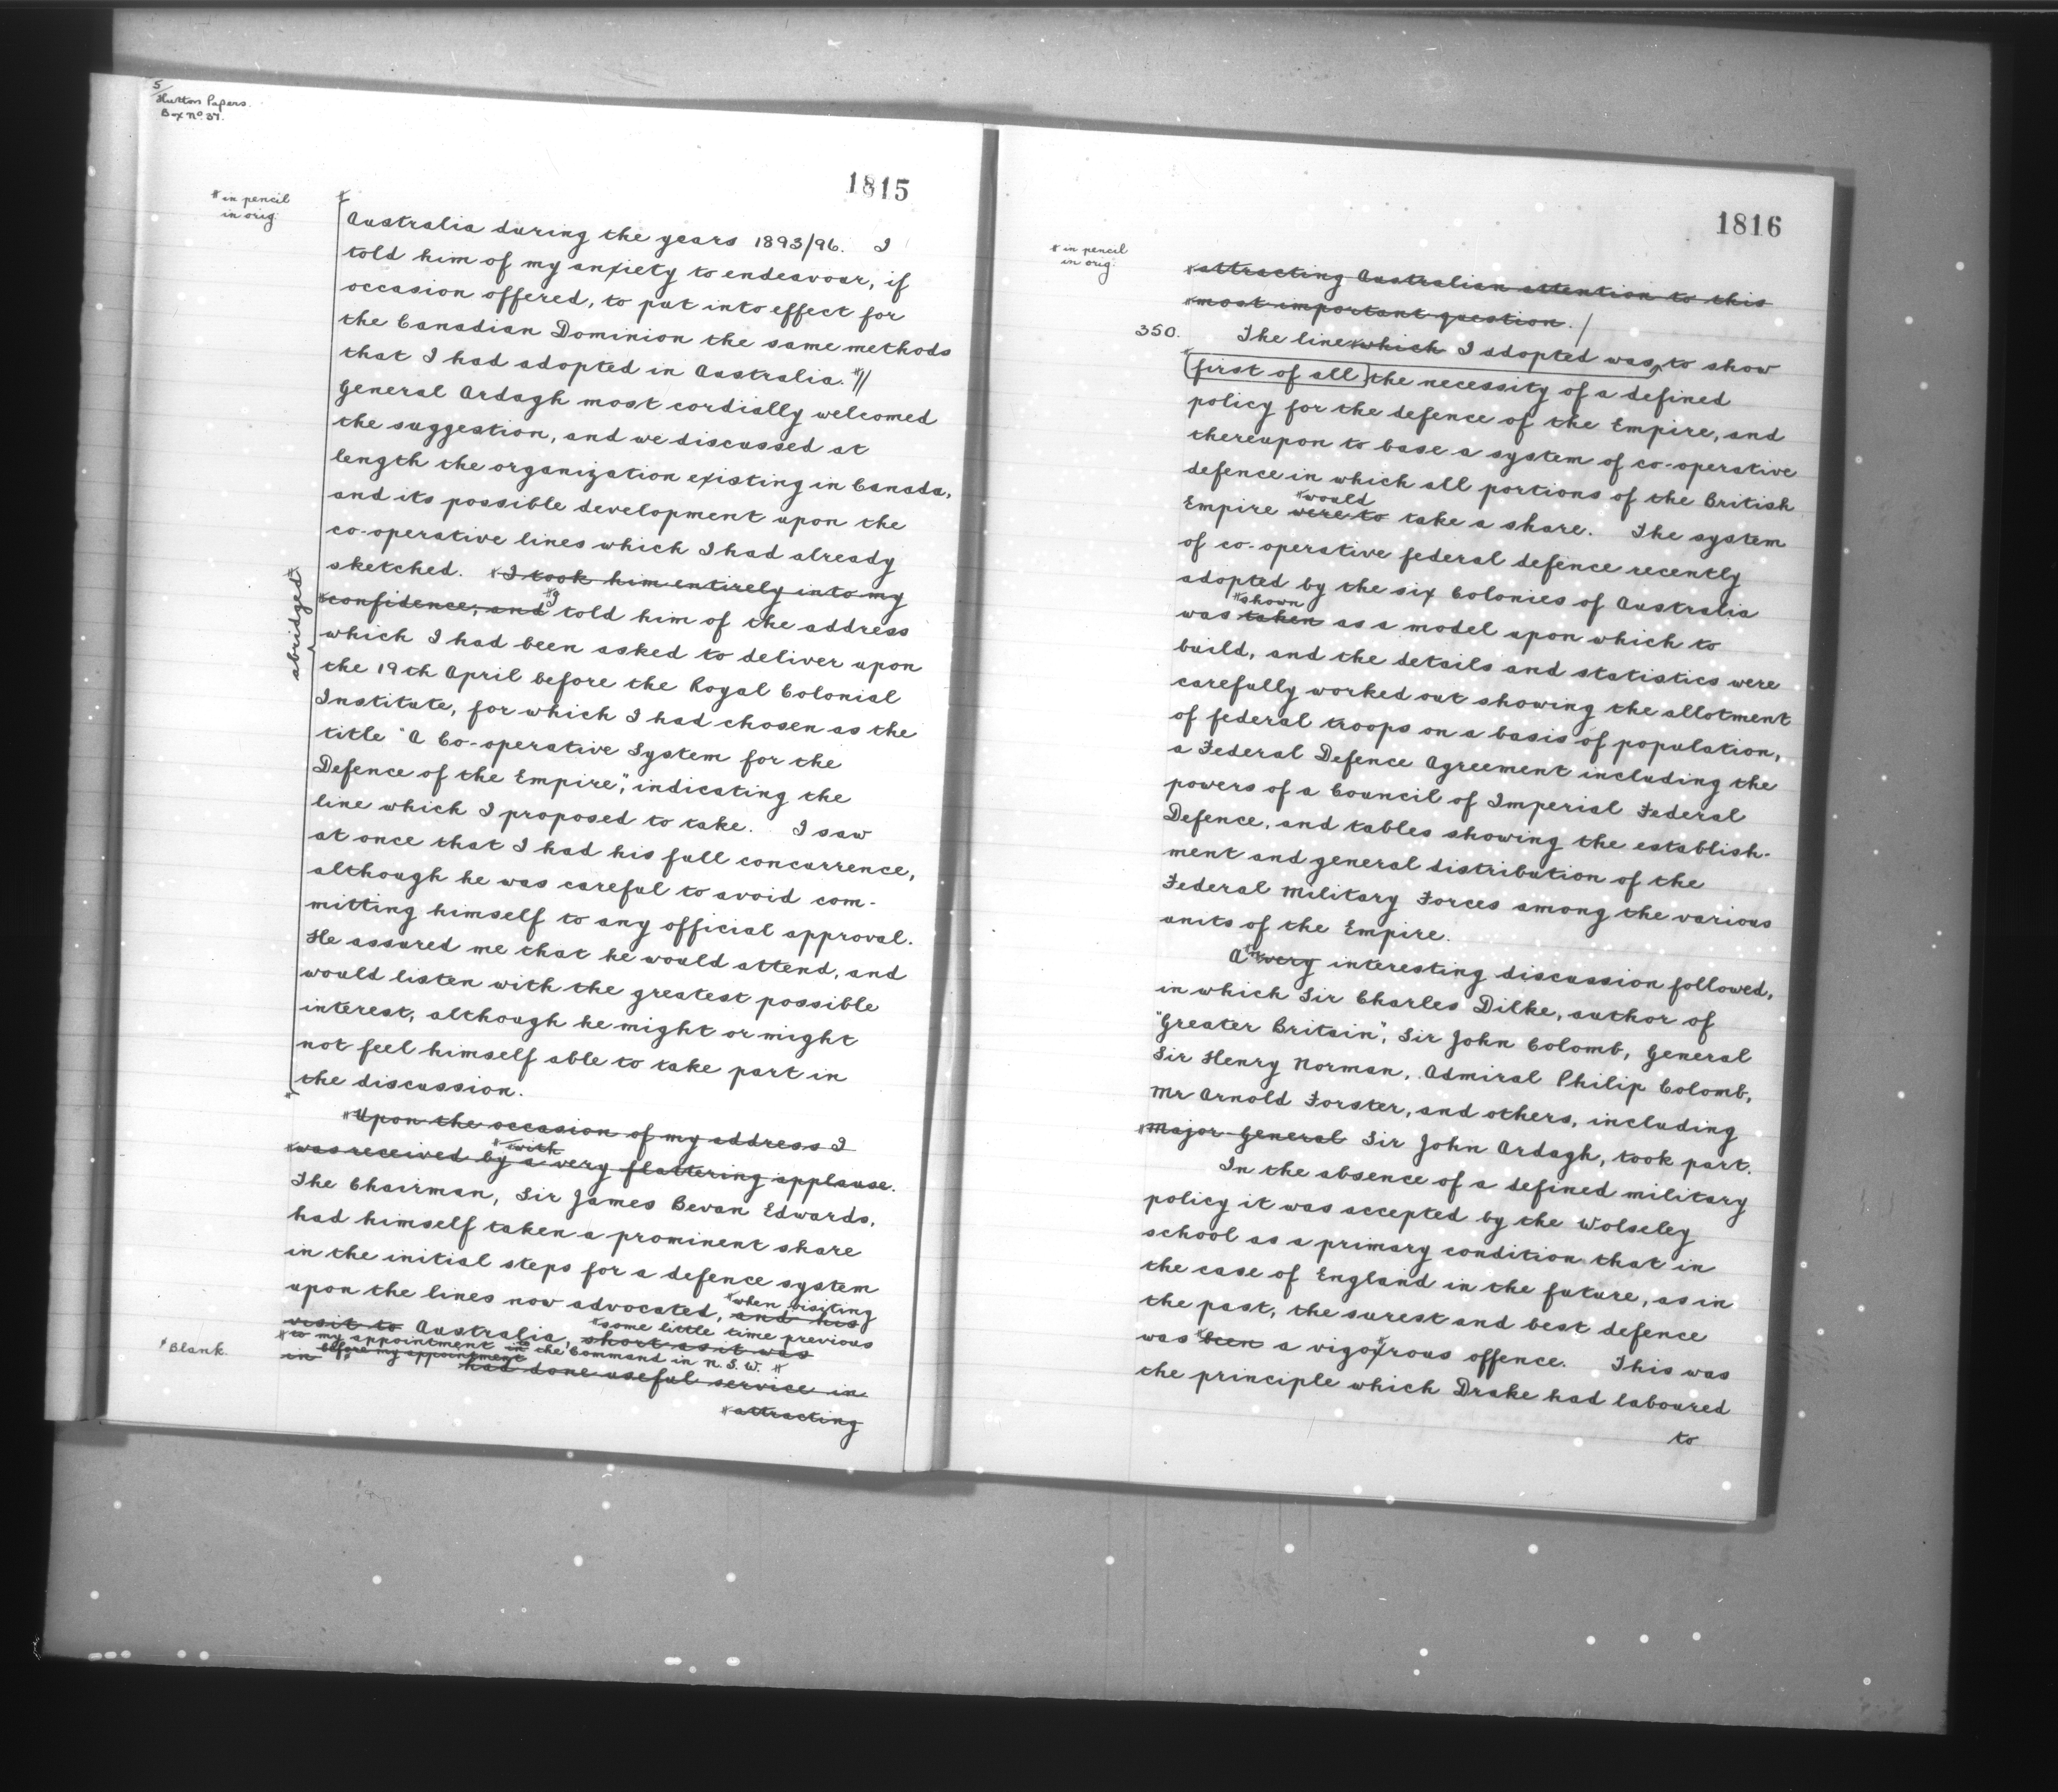 5/
Hutton Papers.
Box No. 37.
1815
* in pencil
in orig.
Australia during the years 1893/96. I
told him of my anxiety to endeavour, if
occasion offered, to put into effect for
the Canadian Dominion the same methods
that I had adopted in Australia.*//
General Ardagh most cordially welcomed
the suggestion, and we discussed at
length the organization existing in Canada,
and its possible development upon the
co-operative lines which I had already
sketched. *I took him entirely into my
*confidence, and *I told him of the address
abridged*
which I had been asked to deliver upon
the 19th April before the Royal Colonial
Institute, for which I had chosen as the
title "A Co-operative System for the
Defence of the Empire", indicating the
line which I proposed to take. I saw
at once that I had his full concurrence,
although he was careful to avoid com-
mitting himself to any official approval.
He assured me that he would attend, and
would listen with the greatest possible
interest, although he might or might
not feel himself able to take part in
the discussion.
*Upon the occasion of my address I
*with
*was received by a very flattering applause.
The Chairman, Sir James Bevan Edwards,
had himself taken a prominent share
in the initial steps for a defence system
*when visiting
upon the lines now advocated, and his
*some little time previous
visit to Australia, short as it was
*to my appointment to the Command in N.S.W.*
before my appointment
*Blank.
in had done useful service in
*attracting
1816
* in pencil
in orig.
*attracting Australian attention to this
*most important question./
350.
The line *which I adopted was, to show
[first of all] the necessity of a defined
policy for the defence of the Empire, and
thereupon to base a system of co-operative
defence in which all portions of the British
*would
Empire were to take a share. The system
of co-operative federal defence recently
adopted by the six Colonies of Australia
*shown
was taken as a model upon which to
build, and the details and statistics were
carefully worked out showing the allotment
of federal troops on a basis of population,
a Federal Defence Agreement including the
powers of a Council of Imperial Federal
Defence, and tables showing the establish-
ment and general distribution of the
Federal Military Forces among the various
units of the Empire.
A*n very interesting discussion followed,
in which Sir Charles Dilke, author of
"Greater Britain", Sir John Colomb, General
Sir Henry Norman, Admiral Philip Colomb,
Mr Arnold Forster, and others, including
*Major-General Sir John Ardagh, took part.
In the absence of a defined military
policy it was accepted by the Wolseley
school as a primary condition that in
the case of England in the future, as in
the past, the surest and best defence
was *been a vigorous offence. This was
the principle which Drake had laboured
to